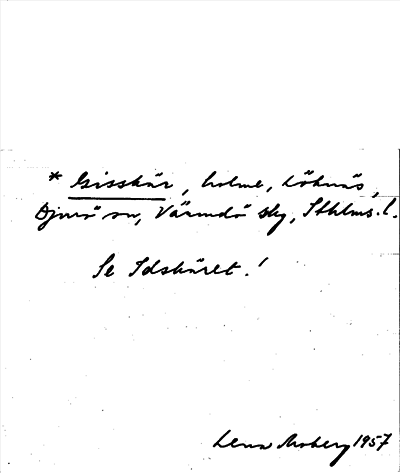 * Gisskär, holme, Löknäs,
Djurö sn, Värmdö skg, Sthlms. l.
Se Idskäret!
Lena Moberg 1957